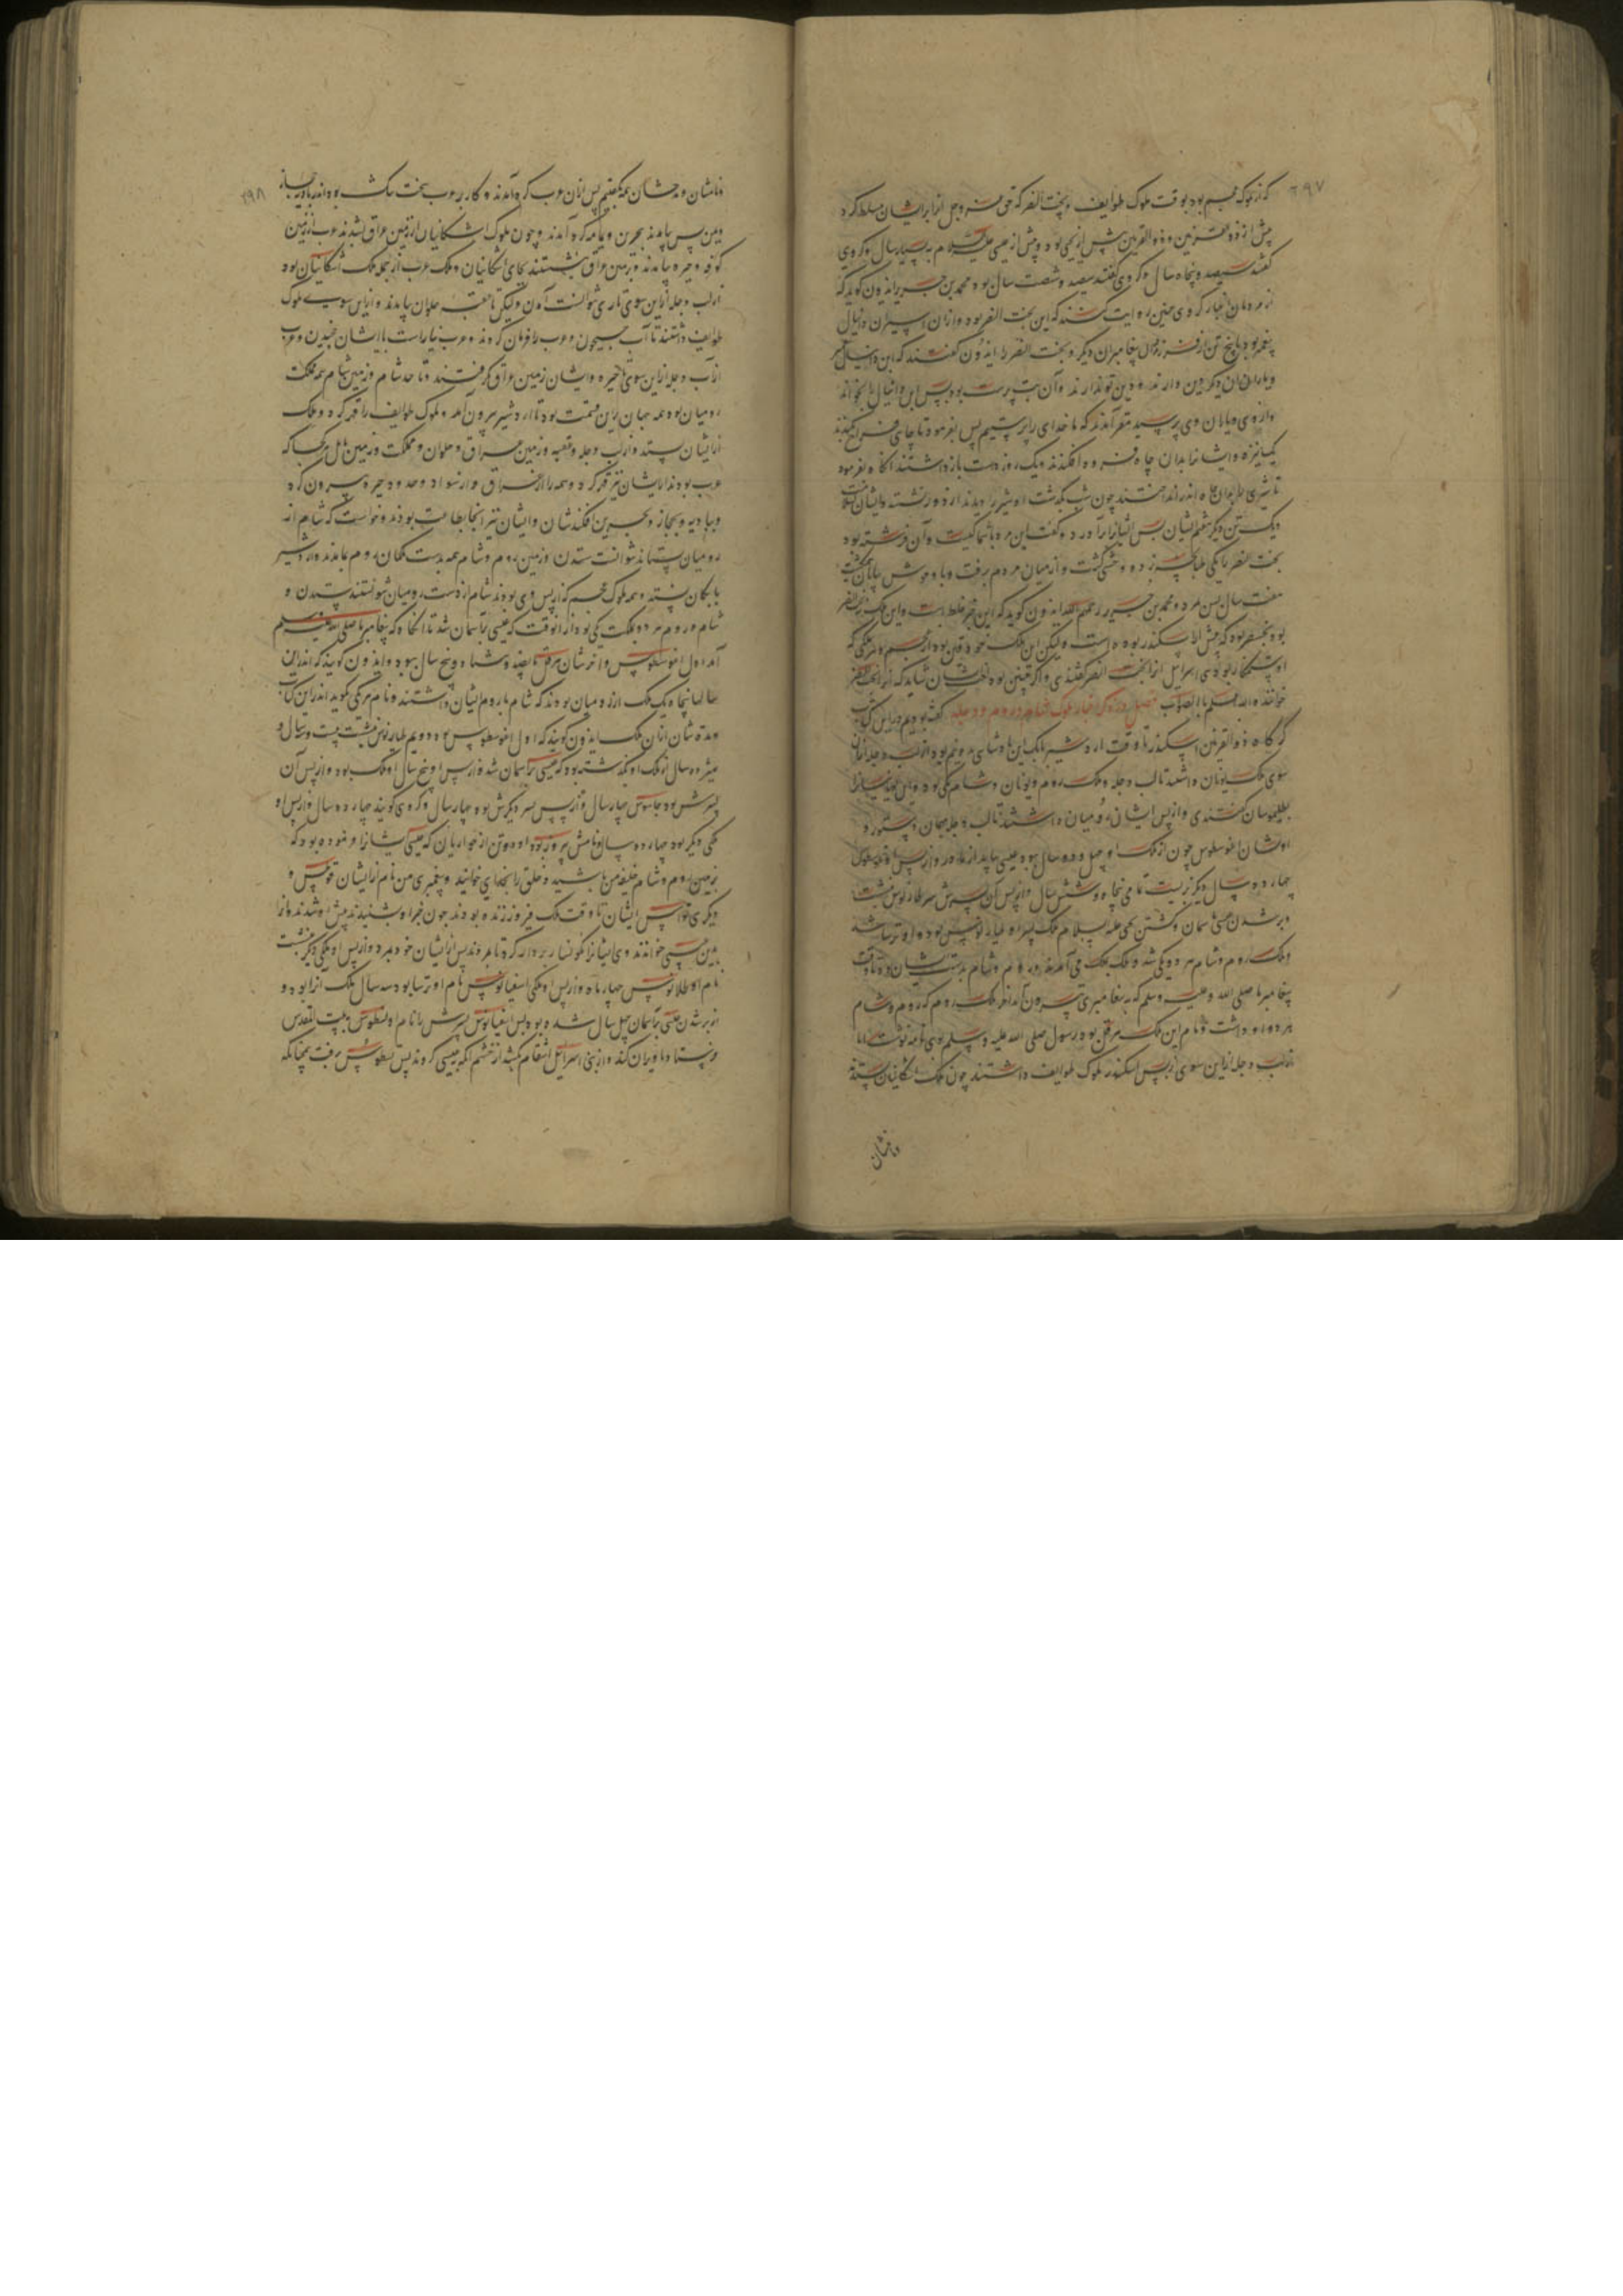 ۲۹۷
که از ملوک عجم بود بوقت ملوک طوایف و بخت النصر که حق عز وجل او را بر ایشان مسلط کرد
پیش از ذوالقرنین و ذوالقرنین پیش از یحیی بود و پیش از عیسی علیه السلام به بسیار سال و گروهی
گفتند سیصد و پنجاه سال و گروهی گفتند سیصد و شصت سال بود محمد بن جریر ایذون گوید که
از مردمان اخبار گروهی چنین روایت کنند که این بخت النصر بود و از آن اسیران دانیال
پیغمبر بود با پنج تن از فرزندان پیغامبران دیگر و بخت النصر را ایذون گفتند که این دانیال
و یاران آن دیگر دین دارند و دین تو ندارند و آن بت پرست بود پس این دانیال را بخواند
و از وی و یاران وی پرسید مقر آمدند که ما خدای را پرستیم پس بفرمود تا چاهی
بکندند و ایشان را بدان چاه فرو افکندند و یک روز دست باز داشتند آنگاه بفرمود
تا شیری را بدان چاه اندر انداختند چون شب بگذشت او شیر را دیدند از دور نشسته و ایشان
و یک تن دیگر هفتم ایشان پس ایشان را برآورد و گفت این مرد با شما کیست و آن فرشته بود
بخت النصر را یکی طپانچه بزد و وحشی گشت و از میان مردم برفت و با وحوش بیابان
هفت سال پس مرد و محمد بن جریر رحمه الله ایذون گوید که این خبر غلط است و این ملک
بود که پیش از اسکندر بوده است ولیکن این ملک خود وقتی بود از عجم و هر ملکی که
او ستمکار بودی بنی اسرائیل او را بخت النصر گفتندی و اگر چنین بود
خوانند والله اعلم بالصواب فصل در ذکر اخبار ملوک شام و روم و دجله گفته بودیم در این کتاب
که گاه ذوالقرنین اسکندر تا وقت اردشیر بابک این پادشاهی بدو نیم بود از لب دجله از آن
سوی ملک یونان داشتند تا لب دجله و ملک روم و یونان و شام یکی بود
بطلیموسان گفتندی و از پس ایشان رومیان داشتند تا لب دجله
اوشان اغوسطوس چون از ملک او چهل و دو سال ببود عیسی بیامد از مادر و از پس او
چهارده سال دیگر بزیست تمامی پنجاه و شش سال و از پس آن پسرش
و بر شدن عیسی بآسمان و کشتن یحیی علیه السلام ملک پسر او طباریوس بود و او ترسا شد
و ملک روم و شام هر دو یکی شد و ملک بملک می آمد و روم و شام بدست ایشان بود تا وقت
پیغامبر ما صلی الله علیه وسلم که به پیغامبری بیرون آمد آخر ملک روم که روم و شام
هر دو او داشت و نام این ملک هرقل بود رسول صلی الله علیه وسلم بوی نامه نوشت اما
از لب دجله از این سوی از پس اسکندر ملوک طوایف داشتند چون ملوک اشکانیان
و نامشان
۲۹۸
و نامشان و مدتشان همه بگفتیم پس از آن عرب گرد آمدند و کار بر عرب سخت تنگ شده بود اندر بادیه حجاز
و یمن پس بیامدند بحرین و یمامه گرد آمدند و چون ملوک اشکانیان از زمین عراق بشدند عرب از زمین
کوفه و حیره بیامدند و زمین عراق بنشستند بجای اشکانیان و ملک عرب از جمله ملک اشکانیان بود
از لب دجله از این سوی تا ری نتوانست آمدن ولیکن تا عقبه حلوان بیامدند و از این سوی ملوک
طوایف داشتند تا آب جیحون و عرب را فرمان کردند
از آب دجله از این سوی تا حیره و ایشان زمین عراق گرفتند و تا حد شام و زمین شام همه مملکت
رومیان بود و همه جهان برین قسمت بود تا اردشیر بیرون آمد و ملوک طوایف را قهر کرد و ملک
از ایشان بستد و از لب دجله و عقبه و زمین عراق و حلوان و مملکت و زمین بابل هر کجا که
عرب بودند ایشان نیز قهر کرد و همه را از عراق و از سواد و حدود حیره بیرون کرد
و ببادیه و حجاز و بحرین فکندشان و ایشان نیز آنجا بطاعت بودند و خواست که شام از
رومیان بستاند نتوانست ستدن و زمین روم و شام همه بدست ملکان روم بماند و اردشیر
بابکان بستد و همه ملوک عجم که از پس وی بودند شام از دست رومیان نتوانستند ستدن و
شام و روم هر دو مملکت یکی بود از آن وقت که عیسی بآسمان شد تا آنگاه که پیغامبر ما صلی الله علیه وسلم
آمد اول اغوسطوس و آخرشان هرقل پانصد و هشتاد و پنج سال ببود و ایذون گویند که اندرین
سالها پنجاه یک ملک از رومیان بودند که شام با روم ایشان داشتند و نام هر یکی بگوید اندر این کتاب
و مدتشان از آن ملک ایذون گویند که اول اغوسطوس بود دویم طباریوس بنشست بیست و سه سال
هژده سال از ملک او گذشته بود که عیسی بآسمان شد و از پس او پنج سال او ملک بود و از پس آن
پسرش بود جایوس چهار سال و از پس پسر دیگرش بود چهار سال و گروهی گویند چهارده سال و از پس او
ملکی دیگر بود چهارده سال و نامش نیرون بود او دو تن از حواریان که عیسی ایشان را فرموده بود که
بزمین روم و شام خلیفه من باشید و خلق را بخدای خوانید و پیغمبری من نام از ایشان
دیگری ایشان تا وقت ملک فیروز زنده بودند چون خبر او شنیدند پیش او شدند و او را
بدین عیسی خواندند وی ایشان را نگونسار بردار کرد تا مردند پس از ایشان خود بمرد و از پس او ملکی دیگر بنشست
نام او طلانوس چهار ماه و از پس او ملکی اسفیانوس نام او ترسا بود سه سال ملک او را بود و
از بر شدن عیسی بآسمان چهل سال شده بود پس اسفیانوس پسرش را نام او ططوس به بیت المقدس
فرستاد تا ویران کند و از بنی اسرائیل انتقام کشد از خشم آنکه بعیسی کردند پس ططوس برفت چنانکه